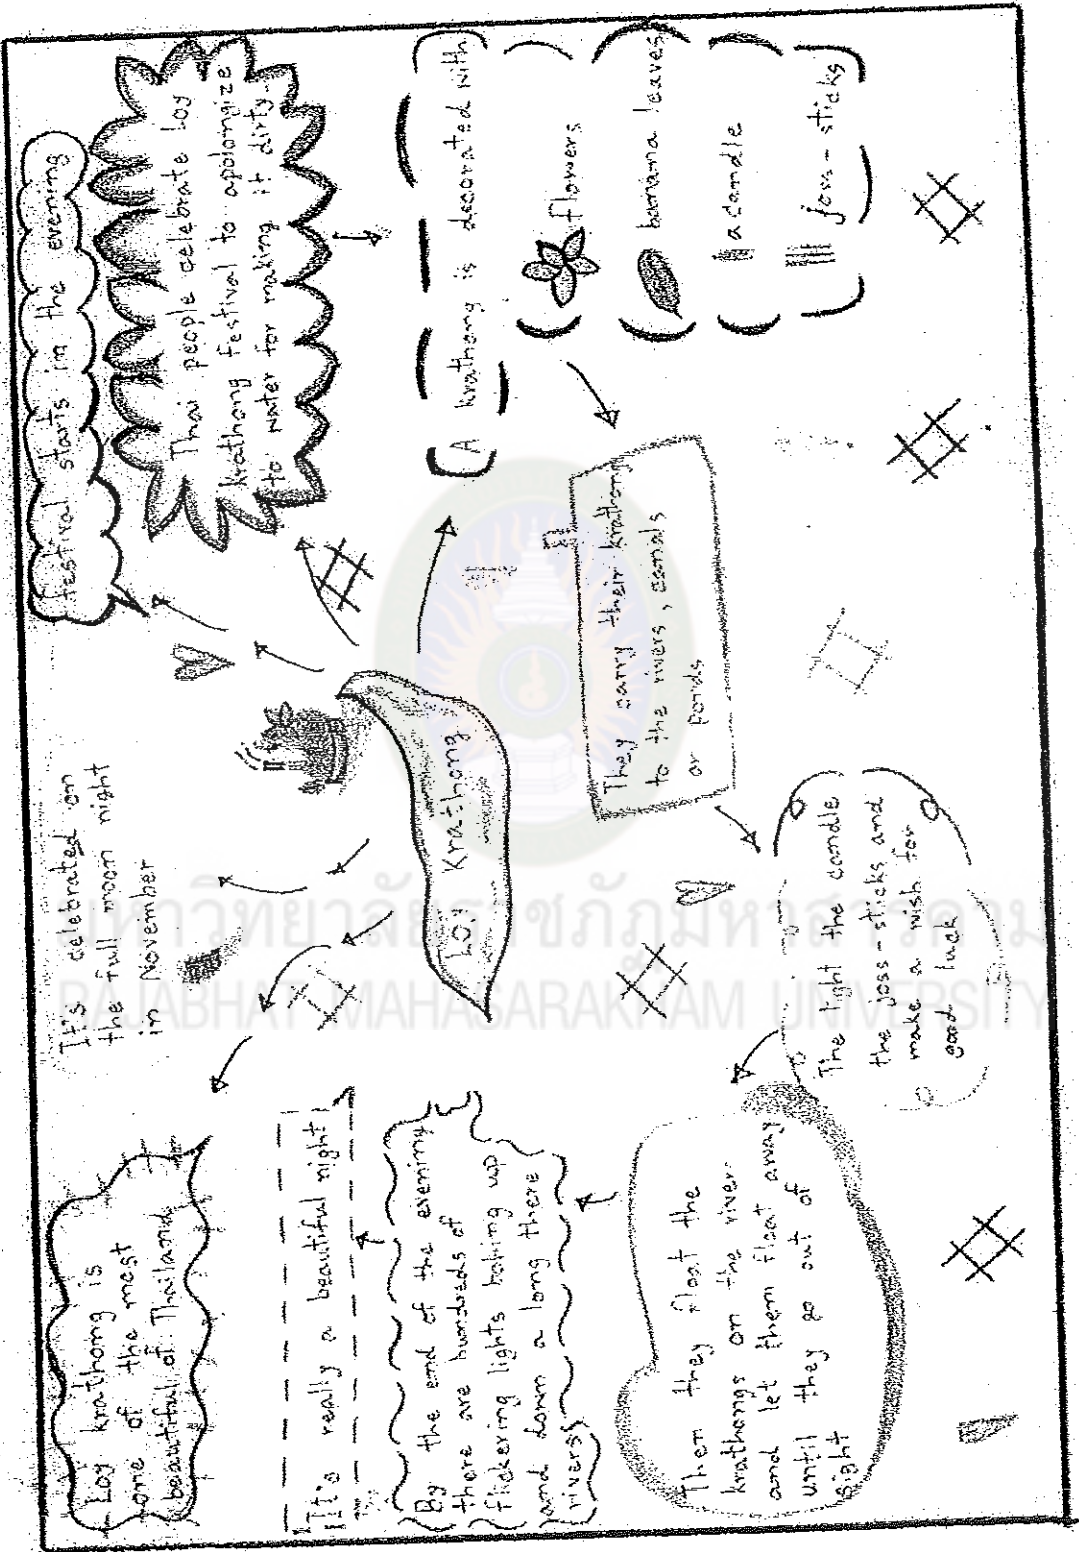 Loy Krathong
Loy krathong is
one of the most
beautiful of Thailand
It's celebrated on
the full moon night
in November
festival starts in the evening
Thai people celebrate Loy
krathong Festival to apolongize
to water for making it dirty.
A krathong is decorated with
flowers
banana leaves
a candle
joss-sticks
They carry their krathong
to the rivers, canals
or ponds
The light the candle
the joss-sticks and
make a wish for
good luck
Then they float the
krathongs on the river
and let them float away
until they go out of
sight
By the end of the evening
there are hundreds of
flickering lights boking up
and down a long there
rivers
It's really a beautiful night
มหาวิทยาลัยราชภัฏมหาสารคาม
RAJABHAT MAHASARAKHAM UNIVERSITY